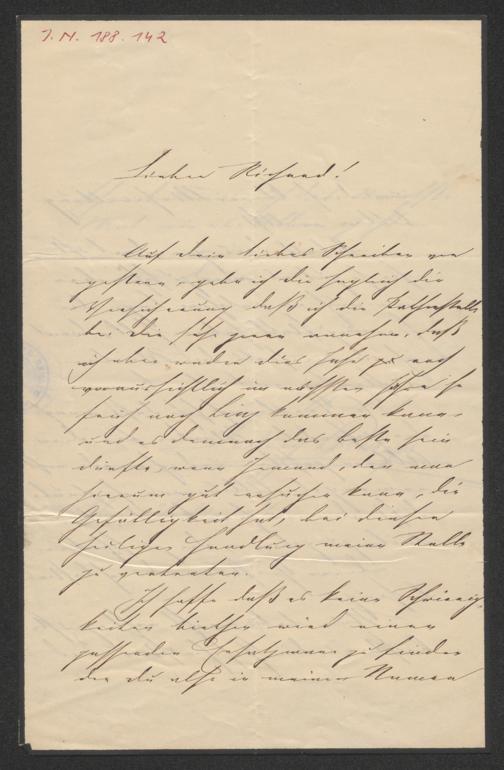 I. N. 188.142
Lieber Richard!
Auf dein liebes Schreiben von
gestern, gebe ich dir sogleich die
Versicherung daß ich die Pathenstelle
bei Dir sehr gerne annehme, daß
ich aber weder dies Jahr noch
voraussichtlich im nächsten Jahre so
früh nach Linz kommen kann
und es demnach das beste sein
dürfte, wenn Jemand, den man
hierum gut ersuchen kann, die
Gefälligkeit hat, bei dieser
heiligen Handlung meine Stelle
zu vertreten.
Ich hoffe daß es keine Schwierig-
keiten bieten wird einen
passenden Ersatzmann zu finden
den du also in meinem Namen